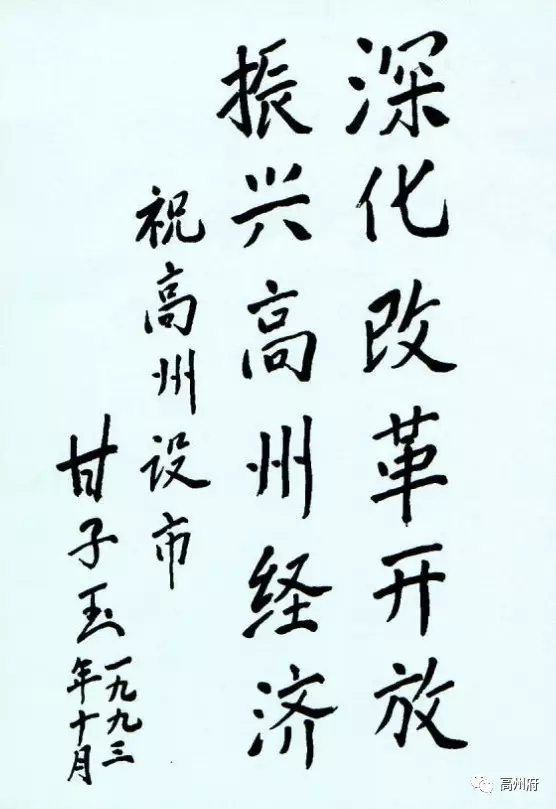 深化改革开放
振兴高州经济
祝高州设市
甘子玉
一九九三
年十月
高州府